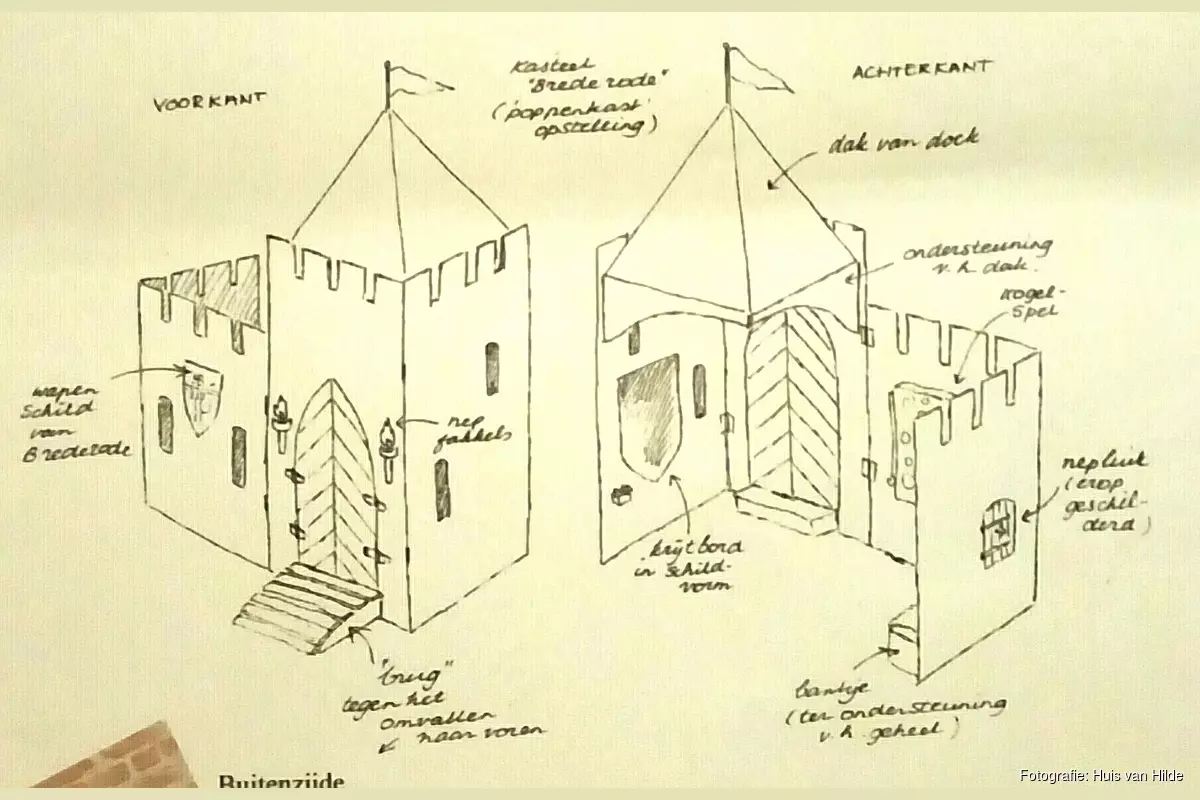 VOORKANT
Kasteel
"Brederode"
('poppenkast'
opstelling)
ACHTERKANT
dak van doek
ondersteuning
v.h. dak.
kogel-
spel
wapen
schild
van
Brederode
nep
fakkels
nepluik
(erop
geschil-
derd)
krijtbord
in schild-
vorm
"brug"
tegen het
omvallen
naar voren
bankje
(ter ondersteuning
v.h. geheel)
Buitenzijde
Fotografie: Huis van Hilde